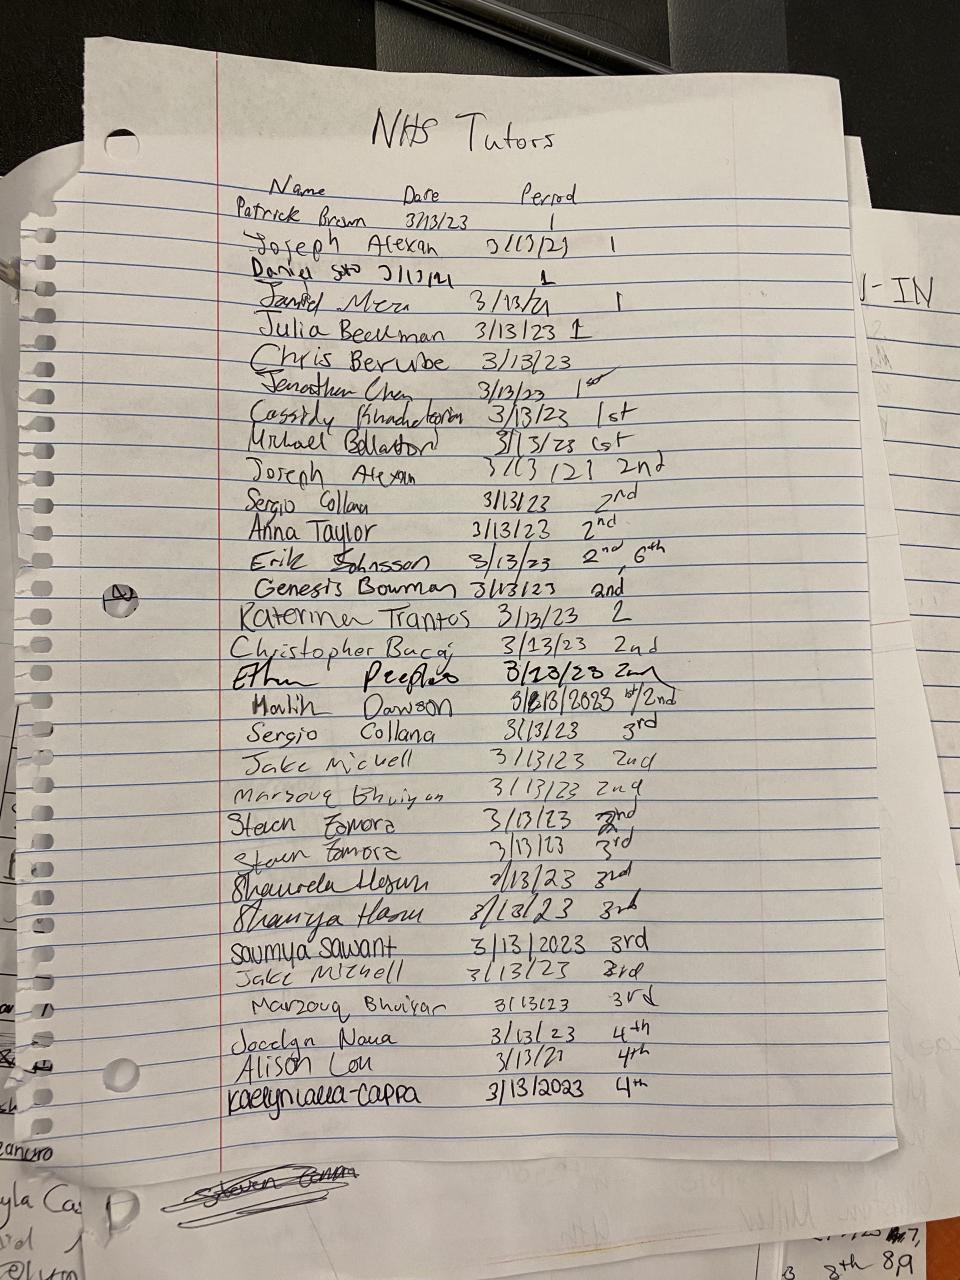 NHS Tutors
Name Date Period
Patrick Brown 3/13/23 1
Joseph Alexan 3/13/23 1
Daniel Soto 3/13/21 1
3/13/21 1
Julia Beekman 3/13/23 1
Chris Berube 3/13/23
Jonathan Chen 3/13/23 1st
Cassidy 3/13/23 1st
Michael 3/13/23 1st
Joseph Alexan 3/13/23 2nd
Sergio Collana 3/13/23 2nd
Anna Taylor 3/13/23 2nd
Erik Johnsson 3/13/23 2nd, 6th
Genesis Bowman 3/13/23 2nd
Katerina Trantos 3/13/23 2
Christopher Bacaj 3/13/23 2nd
Ethan Peeples 3/13/23 2nd
Malik Dawson 3/13/2023 1st/2nd
Sergio Collana 3/13/23 3rd
Jake Michell 3/13/23 2nd
Marzouq Bhuiyan 3/13/23 2nd
Steven Zamora 3/13/23 2nd
Steven Zamora 3/13/23 3rd
3/13/23 3rd
3/13/23 3rd
saumya sawant 3/13/2023 3rd
Jake Michell 3/13/23 3rd
Marzouq Bhuiyan 3/13/23 3rd
Jocelyn Nava 3/13/23 4th
Alison Lou 3/13/23 4th
3/13/2023 4th
N-IN
8th 8,9